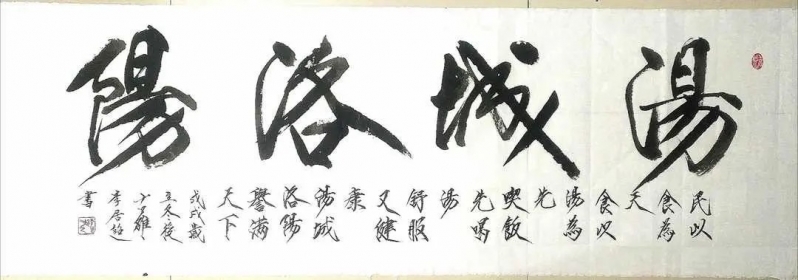 湯城洛陽
民以
食為
天
食以
湯為
先
喫飯
先喝
湯
舒服
又健
康
湯城
洛陽
譽滿
天下
戊戌歲
立冬後
李居
書